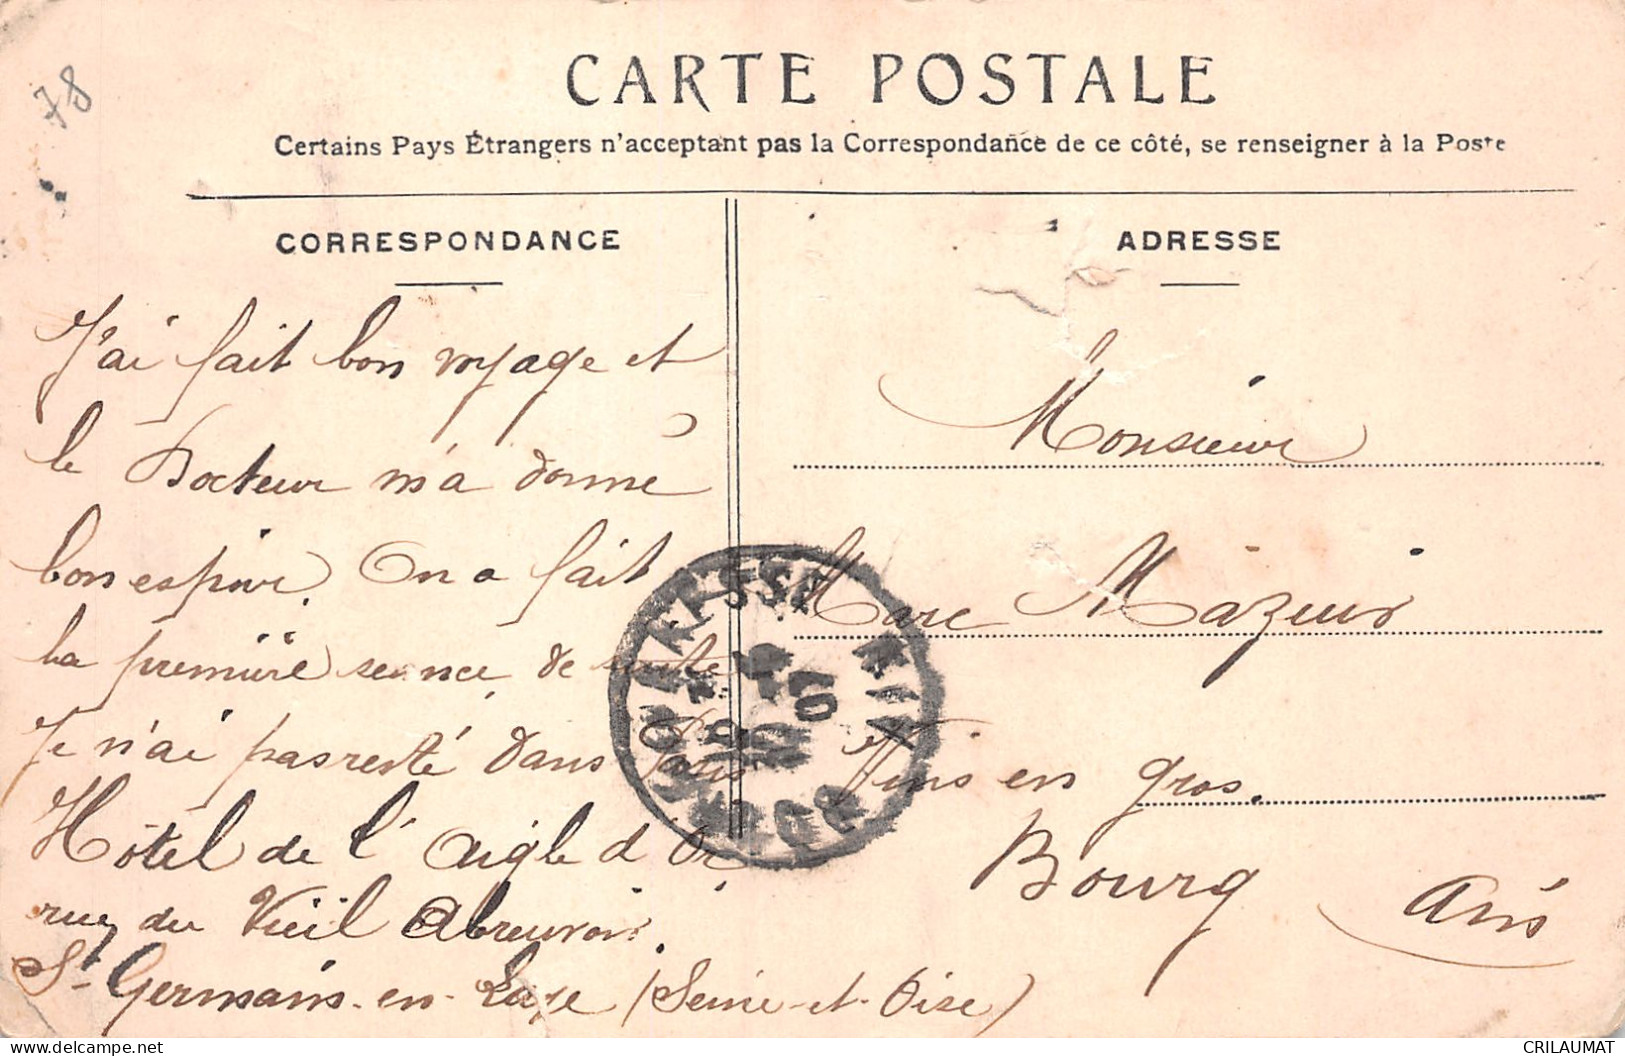 78
CARTE POSTALE
Certains Pays Étrangers n'acceptant pas la Correspondance de ce côté, se renseigner à la Poste
CORRESPONDANCE
J'ai fait bon voyage et
le Docteur m'a donné
bon espoir. On a fait
la première seance de suite
Je n'ai pas resté dans Paris
Hôtel de l'Aigle d'Or
rue du Vieil Abreuvoir
St-Germain-en-Laye (Seine-et-Oise)
ADRESSE
Monsieur
Marc Mazeur
Vins en gros.
Bourg
Ain
07
CRILAUMAT